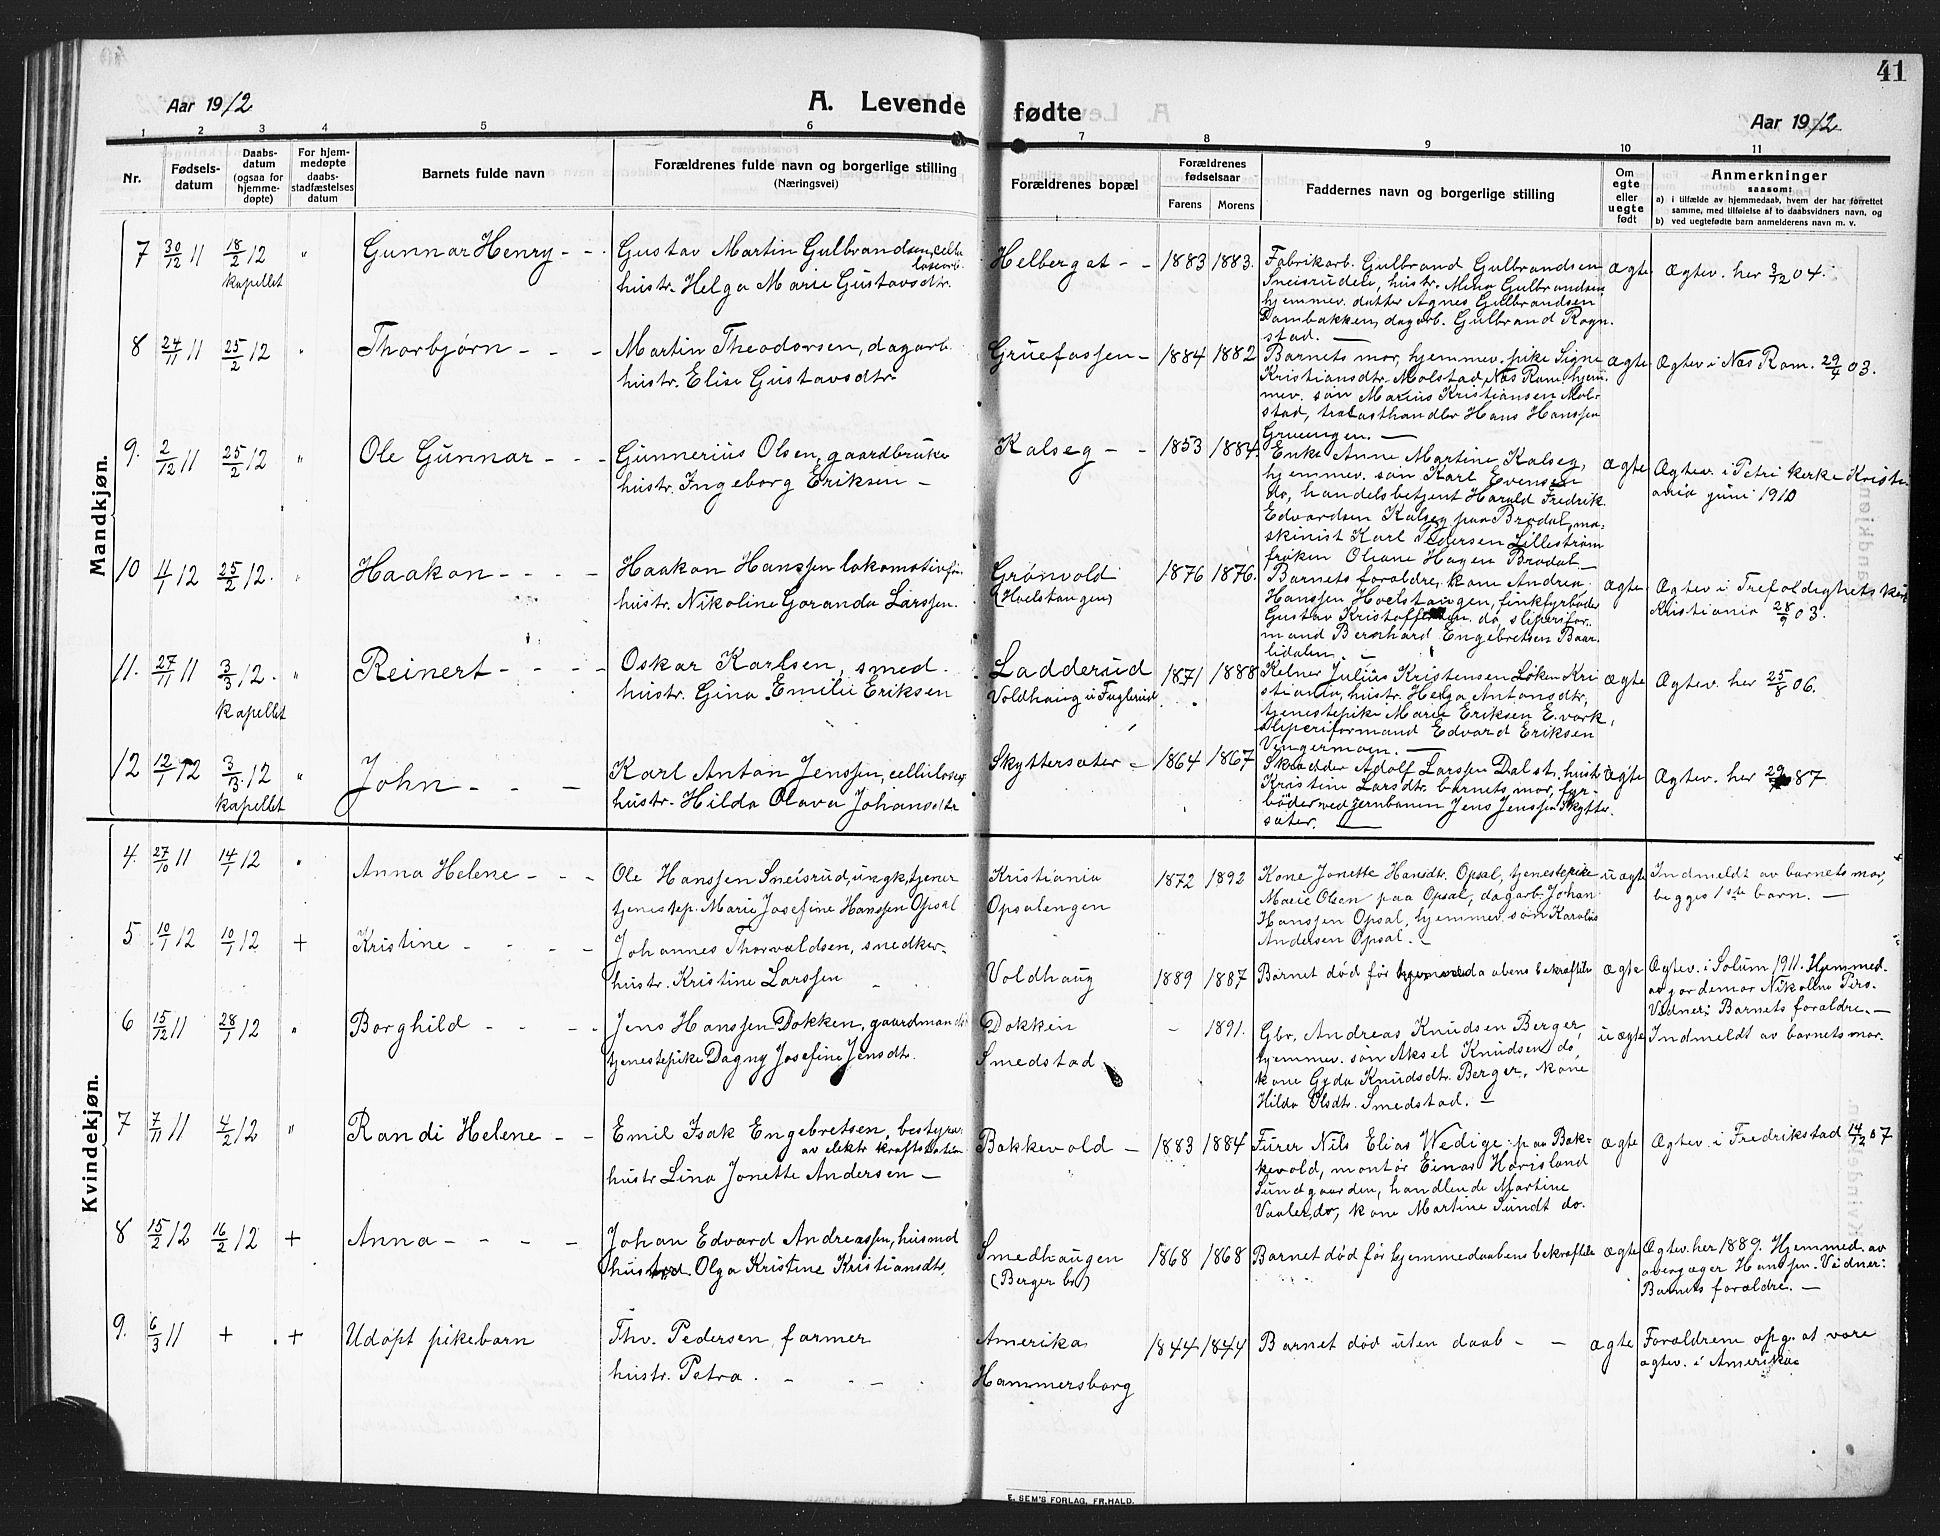 41
Aar 1912
A. Levende fødte
Aar 1912
1 2 3 4 5 6 7 8 9 10 11
Nr.
Fødsels-
datum
Daabs-
datum
(ogsaa for
hjemme-
døpte)
For hjem-
medøpte
daabs-
stadfæstelses
datum
Barnets fulde navn
Forældrenes fulde navn og borgerlige stilling
(Næringsvei)
Forældrenes bopæl
Forældrenes
fødselsaar
Farens Morens
Faddernes navn og borgerlige stilling
Om
egte
eller
uegte
født
Anmerkninger
saasom:
a) i tilfælde av hjemmedaab, hvem der har forrettet
samme, med tilføielse af to daabsvidners navn, og
b) ved uegtefødte barn anmelderens navn m. v.
Mandkjøn.
7 30/12 11 18/2 12 " Gunnar Henry - -
kapellet
Gustav Martin Gulbrandsen, cellu
losearb.
hustr. Helga Marie Gustavsdtr.
Helberget - - 1883 1883.
Fabrikarb. Gulbrand Gulbrandsen
Sneisrudeie, hustr. Mina Gulbrandsen
hjemmev. datter Agnes Gulbrandsen
Dambakken, dagarb. Gulbrand Rogn-
stad. —
ægte Ægtev. her 3/12 04.
8 24/11 11 25/2 12 " Thorbjørn - - -
Martin Theodorsen, dagarb.
hustr. Elise Gustavsdtr.
Gruefossen - 1884 1882
Barnets mor, hjemmev. pike Signe
Kristiansdtr. Molstad, Næs Rom. hjem-
mev. søn Marius Kristiansen Mol-
stad, trælasthandler Hans Hanssen
Grueengen. —
ægte Ægtev i Næs Rom. 29/4 03.
9. 2/12 11 25/2 12 " Ole Gunnar - - -
Gunnerius Olsen, gaardbruker
hustr. Ingeborg Eriksen -
Kalseg - - 1853 1884
Enke Anne Martine Kalseg,
hjemmev. søn Karl Evensen
do, handelsbetjent Harald Fredrik
Edvardsen Kalseg paa Brødal, ma-
skinist Karl Pedersen Lillestrøm
frøken Oliane Hagen Brødal. —
ægte Ægtev. i Petri kerke Kristi-
ania juni 1910
10 4/1 12 25/2 12. " Haakon - - - -
Haakon Hanssen lokomotivfø.
hustr. Nikoline Goranda Larssen.
Grønvold
(Hoelstangen)
1876 1876.
Barnets forældre, kone Andrea
Hanssen Hoelstangen, finkfyrbøder
Gustav Kristoffersen do, sliperifor-
mand Bernhard Engebretsen Baar-
lidalen. —
ægte Ægtev i Trefoldighets kirke
Kristiania 28/9 03.
11. 27/11 11 3/3 12. " Reinert - - - -
kapellet
Oskar Karlsen, smed.
hustr. Gina Emilie Eriksen
Ladderud
Voldhaug i Fuglerud
1871 1888
Kelner Julius Kristensen Løken Kri
stiania, hustr. Helga Antonsdtr,
tjenestepike Marie Eriksen E. værk,
sliperiformand Edvard Eriksen
Vingermoen. —
ægte Ægtev. her 25/8 06.
12 12/1 12 3/3 12 " John - - -
kapellet
Karl Anton Jenssen, cellulosearb
hustr. Hilda Olava Johansdtr
Skyttersæter - 1864 1867
Skrædder Adolf Larssen Dalst., hustr
Kristine Larsdtr. barnets mor, fyr-
bøder ved jernbanen Jens Jenssen Skytter-
sæter. —
ægte Ægtev. her 87.
Kvindekjøn.
4. 27/10 11 14/1 12 " Anna Helene - - -
Ole Hanssen Sneisrud, ungk, tjener
tjenestep. Marie Josefine Hanssen Opsal
Kristiania
Opsalengen
1872 1892
Kone Jonette Hansdtr. Opsal, tjenestepike
Marie Olsen paa Opsal, dagarb. Johan
Hanssen Opsal, hjemmev. søn Karolius
Andersen Opsal. —
uægte Indmeldt av barnets mor,
begges 1ste barn. —
5 10/1 12 10/1 12 + Kristine - - - -
Johannes Thorvaldsen, snedker
hustr. Kristine Larssen -
Voldhaug 1889 1887
Barnet død før hjemmedaabens bekræftelse
ægte Ægtev. i Solum 1911. Hjemmed.
av jordemor Nikoline Pers.
Vidner: Barnets forældre. —
6 15/12 11 28/1 12 " Borghild - - - -
Jens Hanssen Dokken, gaardmand
tjenestepike Dagny Josefine Jensdtr.
Dokken
Smedstad
- 1891.
Gbr. Andreas Knudsen Berger,
hjemmev. søn Aksel Knudsen do,
kone Gyda Knudsdtr. Berger, kone
Hilda Olsdtr. Smedstad. —
uægte Indmeldt av barnets mor.
7 7/11 11 4/2 12 " Randi Helene - -
Emil Isak Engebretsen, bestyrer
av elektr. kraftstation
hustr Lina Jonette Andersen -
Bakkevold - 1883 1884
Furer Nils Elias Wedige paa Bak-
kevold, montør Einar Horisland
Sundgaarden, handlende Martine
Vaaler do, kone Martine Sundt do.
ægte Ægtev. i Fredrikstad 14/12 07
8 15/2 12 16/2 12 + Anna - - - -
Johan Edvard Andreassen, husmd
hustr. Olga Kristine Kristiansdtr.
Smedhaugen
(Berger br)
1868 1868
Barnet død før hjemmedaabens bekræftelse
ægte Ægtev. her 1889. Hjemmed. av
avensæger Hanssen. Vidner:
Barnets forældre. —
9. 6/3 11 + + Udøpt pikebarn
Thv. Pedersen, farmer
hustr. Petra. - - -
Amerika
Hammersborg
1844 1844
Barnet død uten daab - -
ægte Forældrene opg. at være
ægtev. i Amerika
E. SEM'S FORLAG, FR.HALD.